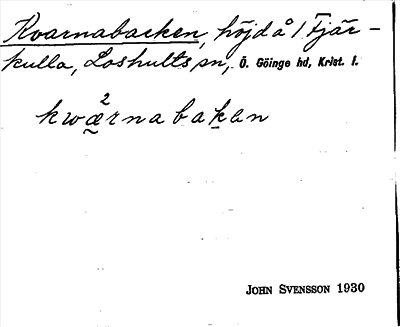 Kvarnabacken, höjd å / Tjär-
kulla, Loshults sn, Ö. Göinge hd, Krist. l.
2
kwærnabakan
JOHN SVENSSON 1930